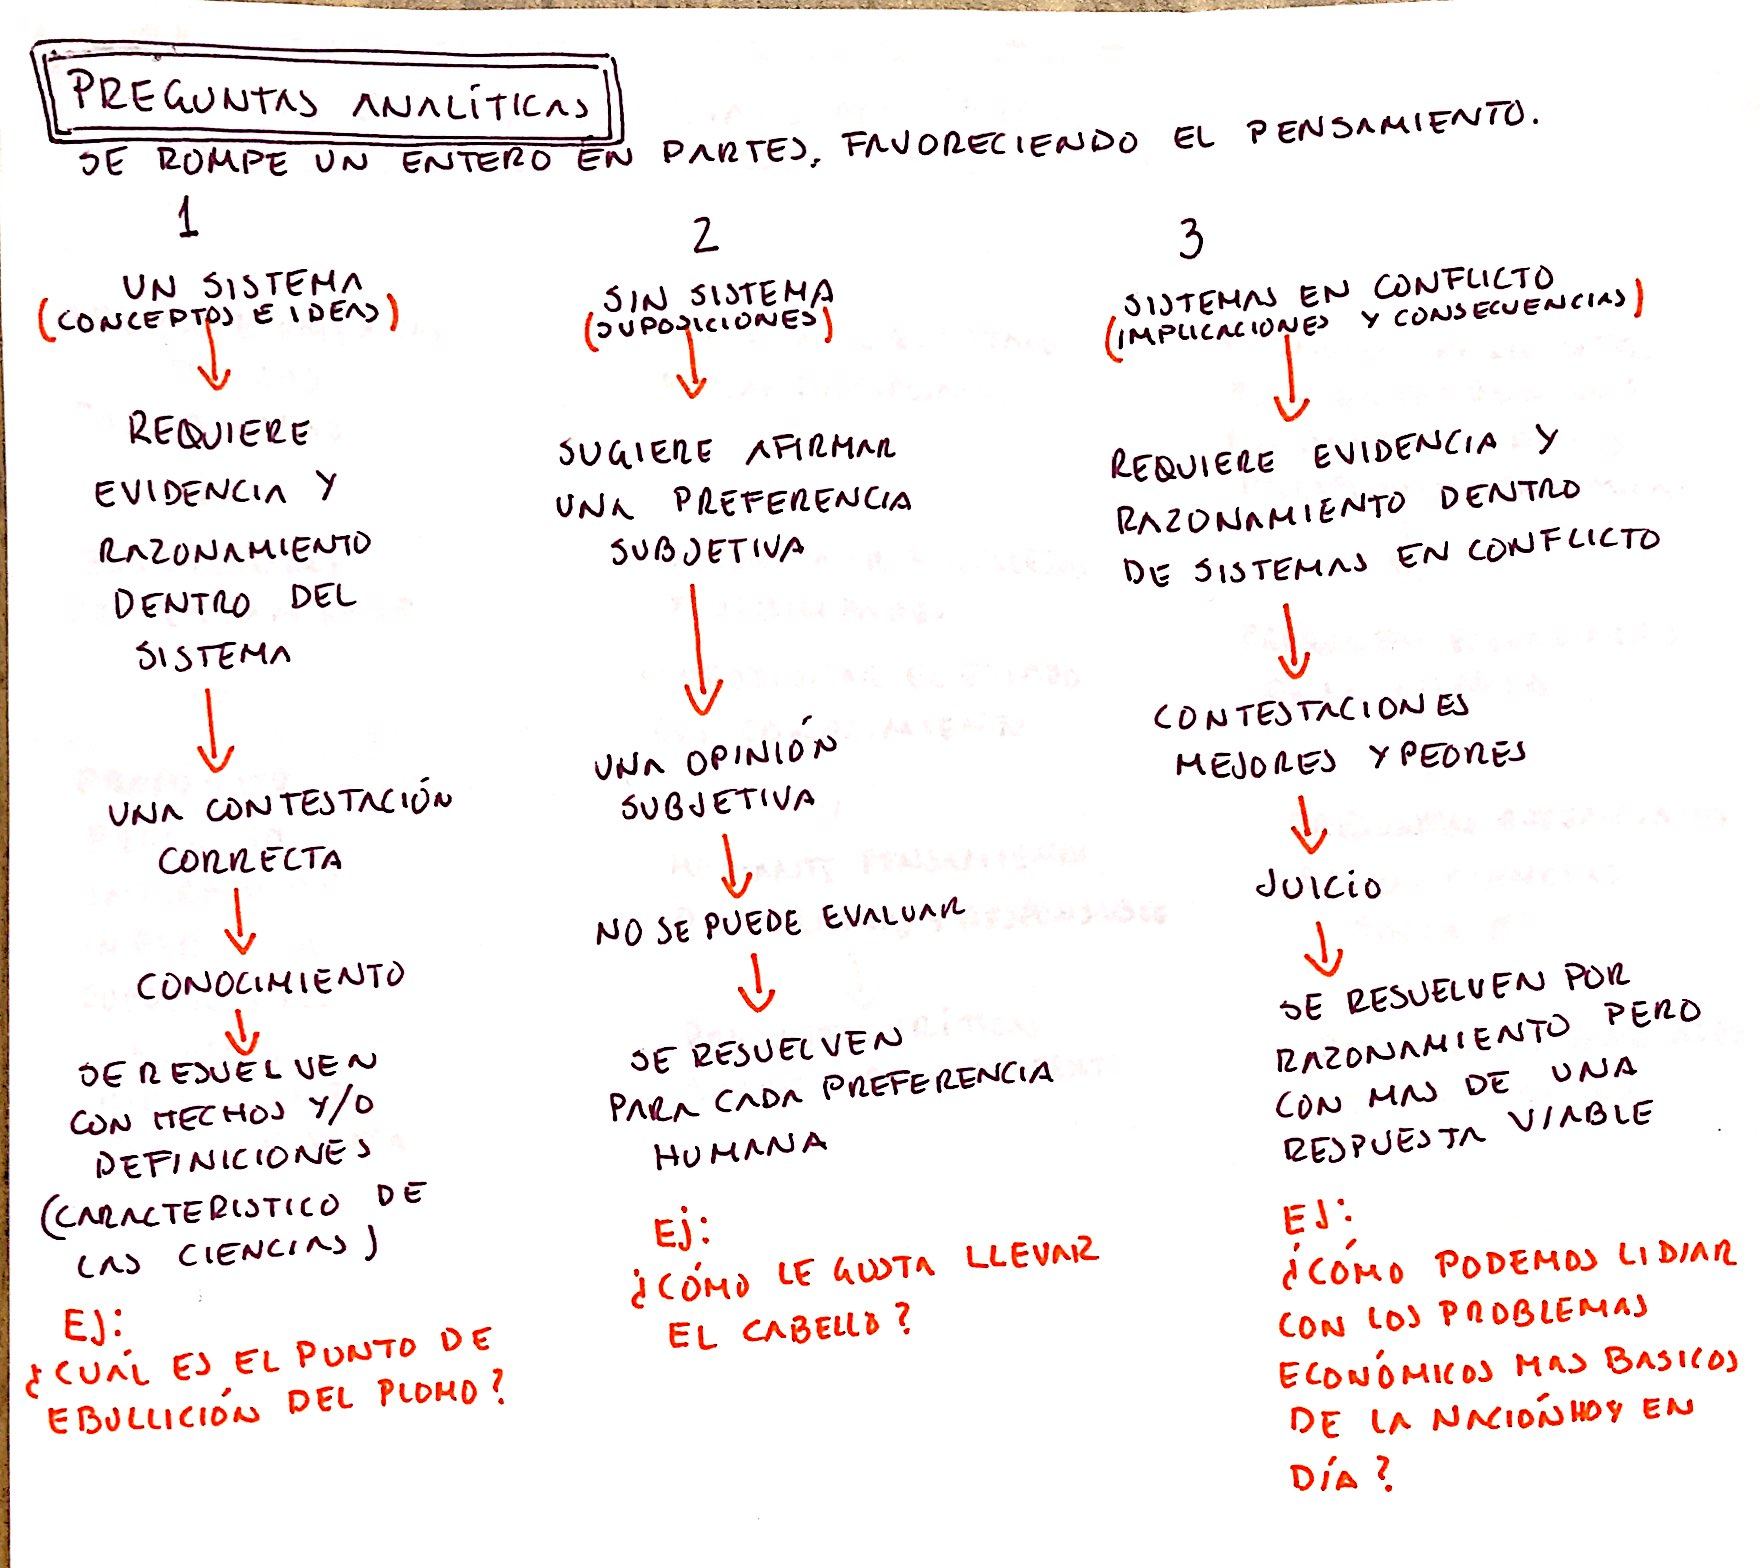 PREGUNTAS ANALÍTICAS
SE ROMPE UN ENTERO EN PARTES, FAVORECIENDO EL PENSAMIENTO.
1
UN SISTEMA
(CONCEPTOS E IDEAS)
REQUIERE
EVIDENCIA Y
RAZONAMIENTO
DENTRO DEL
SISTEMA
UNA CONTESTACIÓN
CORRECTA
CONOCIMIENTO
SE RESUELVEN
CON HECHOS Y/O
DEFINICIONES
(CARACTERISTICO DE
LAS CIENCIAS)
EJ:
¿CUÁL ES EL PUNTO DE
EBULLICIÓN DEL PLOMO?
2
SIN SISTEMA
(SUPOSICIONES)
SUGIERE AFIRMAR
UNA PREFERENCIA
SUBJETIVA
UNA OPINIÓN
SUBJETIVA
NO SE PUEDE EVALUAR
SE RESUELVEN
PARA CADA PREFERENCIA
HUMANA
Ej:
¿CÓMO LE GUSTA LLEVAR
EL CABELLO?
3
SISTEMAS EN CONFLICTO
(IMPLICACIONES Y CONSECUENCIAS)
REQUIERE EVIDENCIA Y
RAZONAMIENTO DENTRO
DE SISTEMAS EN CONFLICTO
CONTESTACIONES
MEJORES Y PEORES
JUICIO
SE RESUELVEN POR
RAZONAMIENTO PERO
CON MAS DE UNA
RESPUESTA VIABLE
EJ:
¿CÓMO PODEMOS LIDIAR
CON LOS PROBLEMAS
ECONÓMICOS MAS BASICOS
DE LA NACIÓN HOY EN
DÍA?